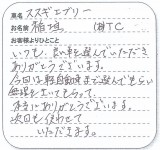 車名 スズキエブリー
お名前 稲垣 (株)TC
お客様よりひとこと
いつも、良い車を選んでいただき
ありがとうございます。
今回は軽自動車まで選んでもらい
無理を言ってもらって、
本当にありがとうございます。
次回も使わせて
いただきます。